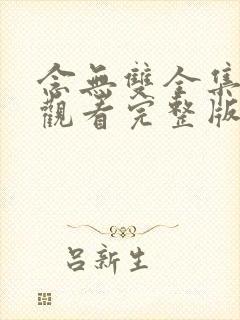 念無雙全集
觀看完整版
呂新生